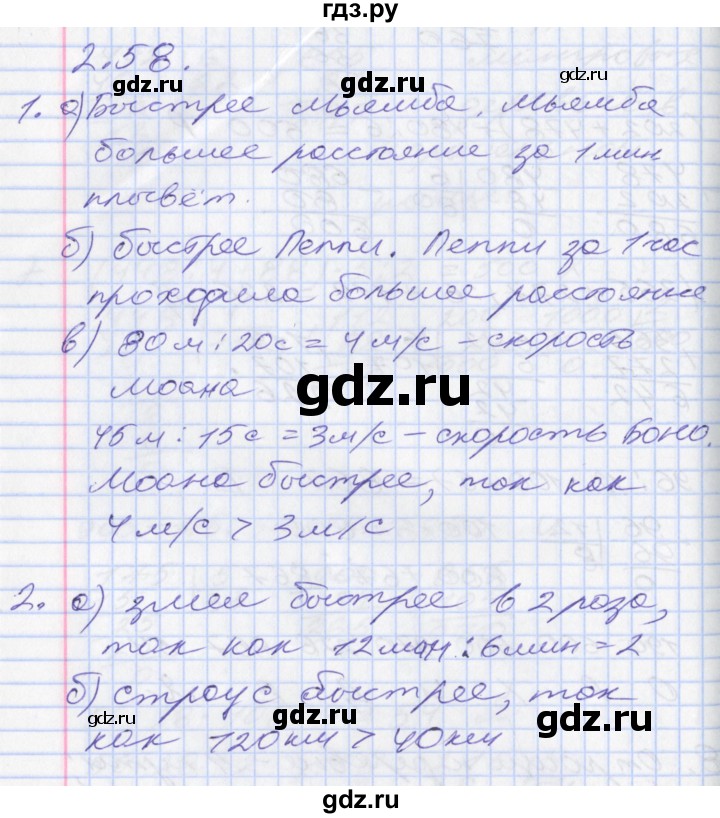 гдз.ру
2.58.
1. а) Быстрее Мьямба. Мьямба
большее расстояние за 1 мин
плывёт.
б) быстрее Пеппи. Пеппи за 1 час
проходила большее расстояние
в) 80 м : 20 с = 4 м/с – скорость
Моана
45 м : 15 с = 3 м/с – скорость Боно.
Моана быстрее, так как
4 м/с > 3 м/с
2. а) змея быстрее в 2 раза,
так как 12 мин : 6 мин = 2
б) страус быстрее, так
как 120 км > 40 км
gdz.ru
gdz.ru
gdz.ru
gdz.ru
gdz.ru
gdz.ru
gdz.ru
gdz.ru
gdz.ru
gdz.ru
gdz.ru
gdz.ru